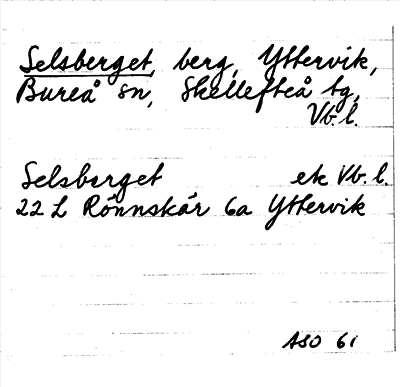 Selsberget, berg, Yttervik,
Bureå sn, Skellefteå tg,
Vb. l.
Selsberget ek Vb. l.
22 L Rönnskär 6a Yttervik
ASO 61